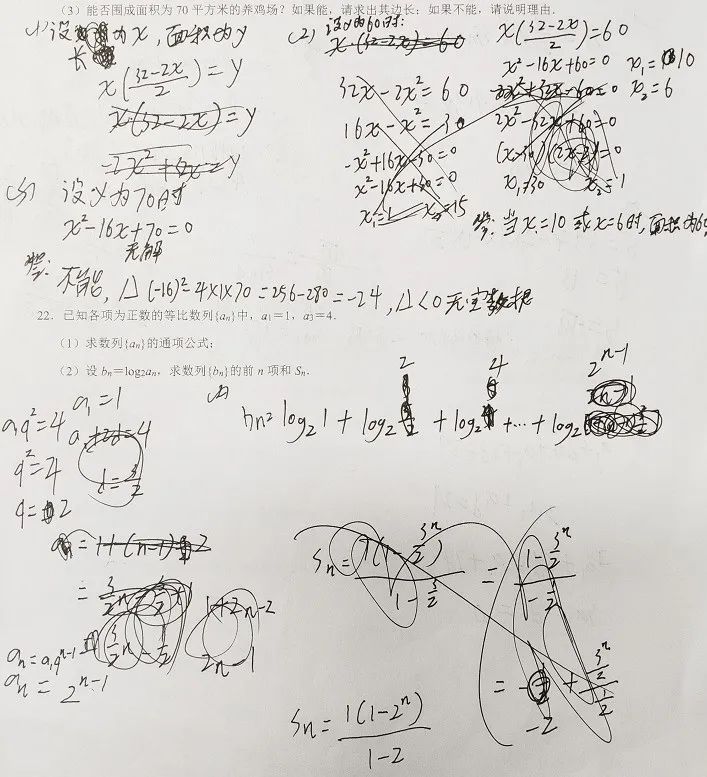 （3）能否围成面积为70平方米的养鸡场？如果能，请求出其边长；如果不能，请说明理由．
(1) 设 长 为 x, 面积为 y
x(\frac{32-2x}{2}) = y
x(32-2x) = y
(2) 设y为60时:
x(32-2x)=60
32x-2x²=60
16x-x²=30
-x²+16x-30=0
x²-16x+30=0
x₁=1 x₂=15
x(\frac{32-2x}{2})=60
x²-16x+60=0 x₁=10
x₂=6
2x²-32x+60=0
x₁=30 x₂=1
答: 当x=10或x=6时, 面积为60
(3) 设y为70时
x²-16x+70=0
无解
答: 不能, △(-16)²-4×1×70=256-280=-24, △<0无实数根
22．已知各项为正数的等比数列{aₙ}中，a₁=1，a₃=4．
（1）求数列{aₙ}的通项公式；
（2）设 bₙ=log₂aₙ，求数列{bₙ}的前 n 项和 Sₙ．
a₁=1
a₁q²=4
a₁+2d=4
q²=4
d=\frac{3}{2}
q=2
=1+(n-1)·2
1+2n-2
2n-1
aₙ=a₁qⁿ⁻¹
aₙ=2ⁿ⁻¹
(2) bn=log₂1+log₂2+log₂4+…+log₂2ⁿ⁻¹
Sn=\frac{1(1-2ⁿ)}{1-2}